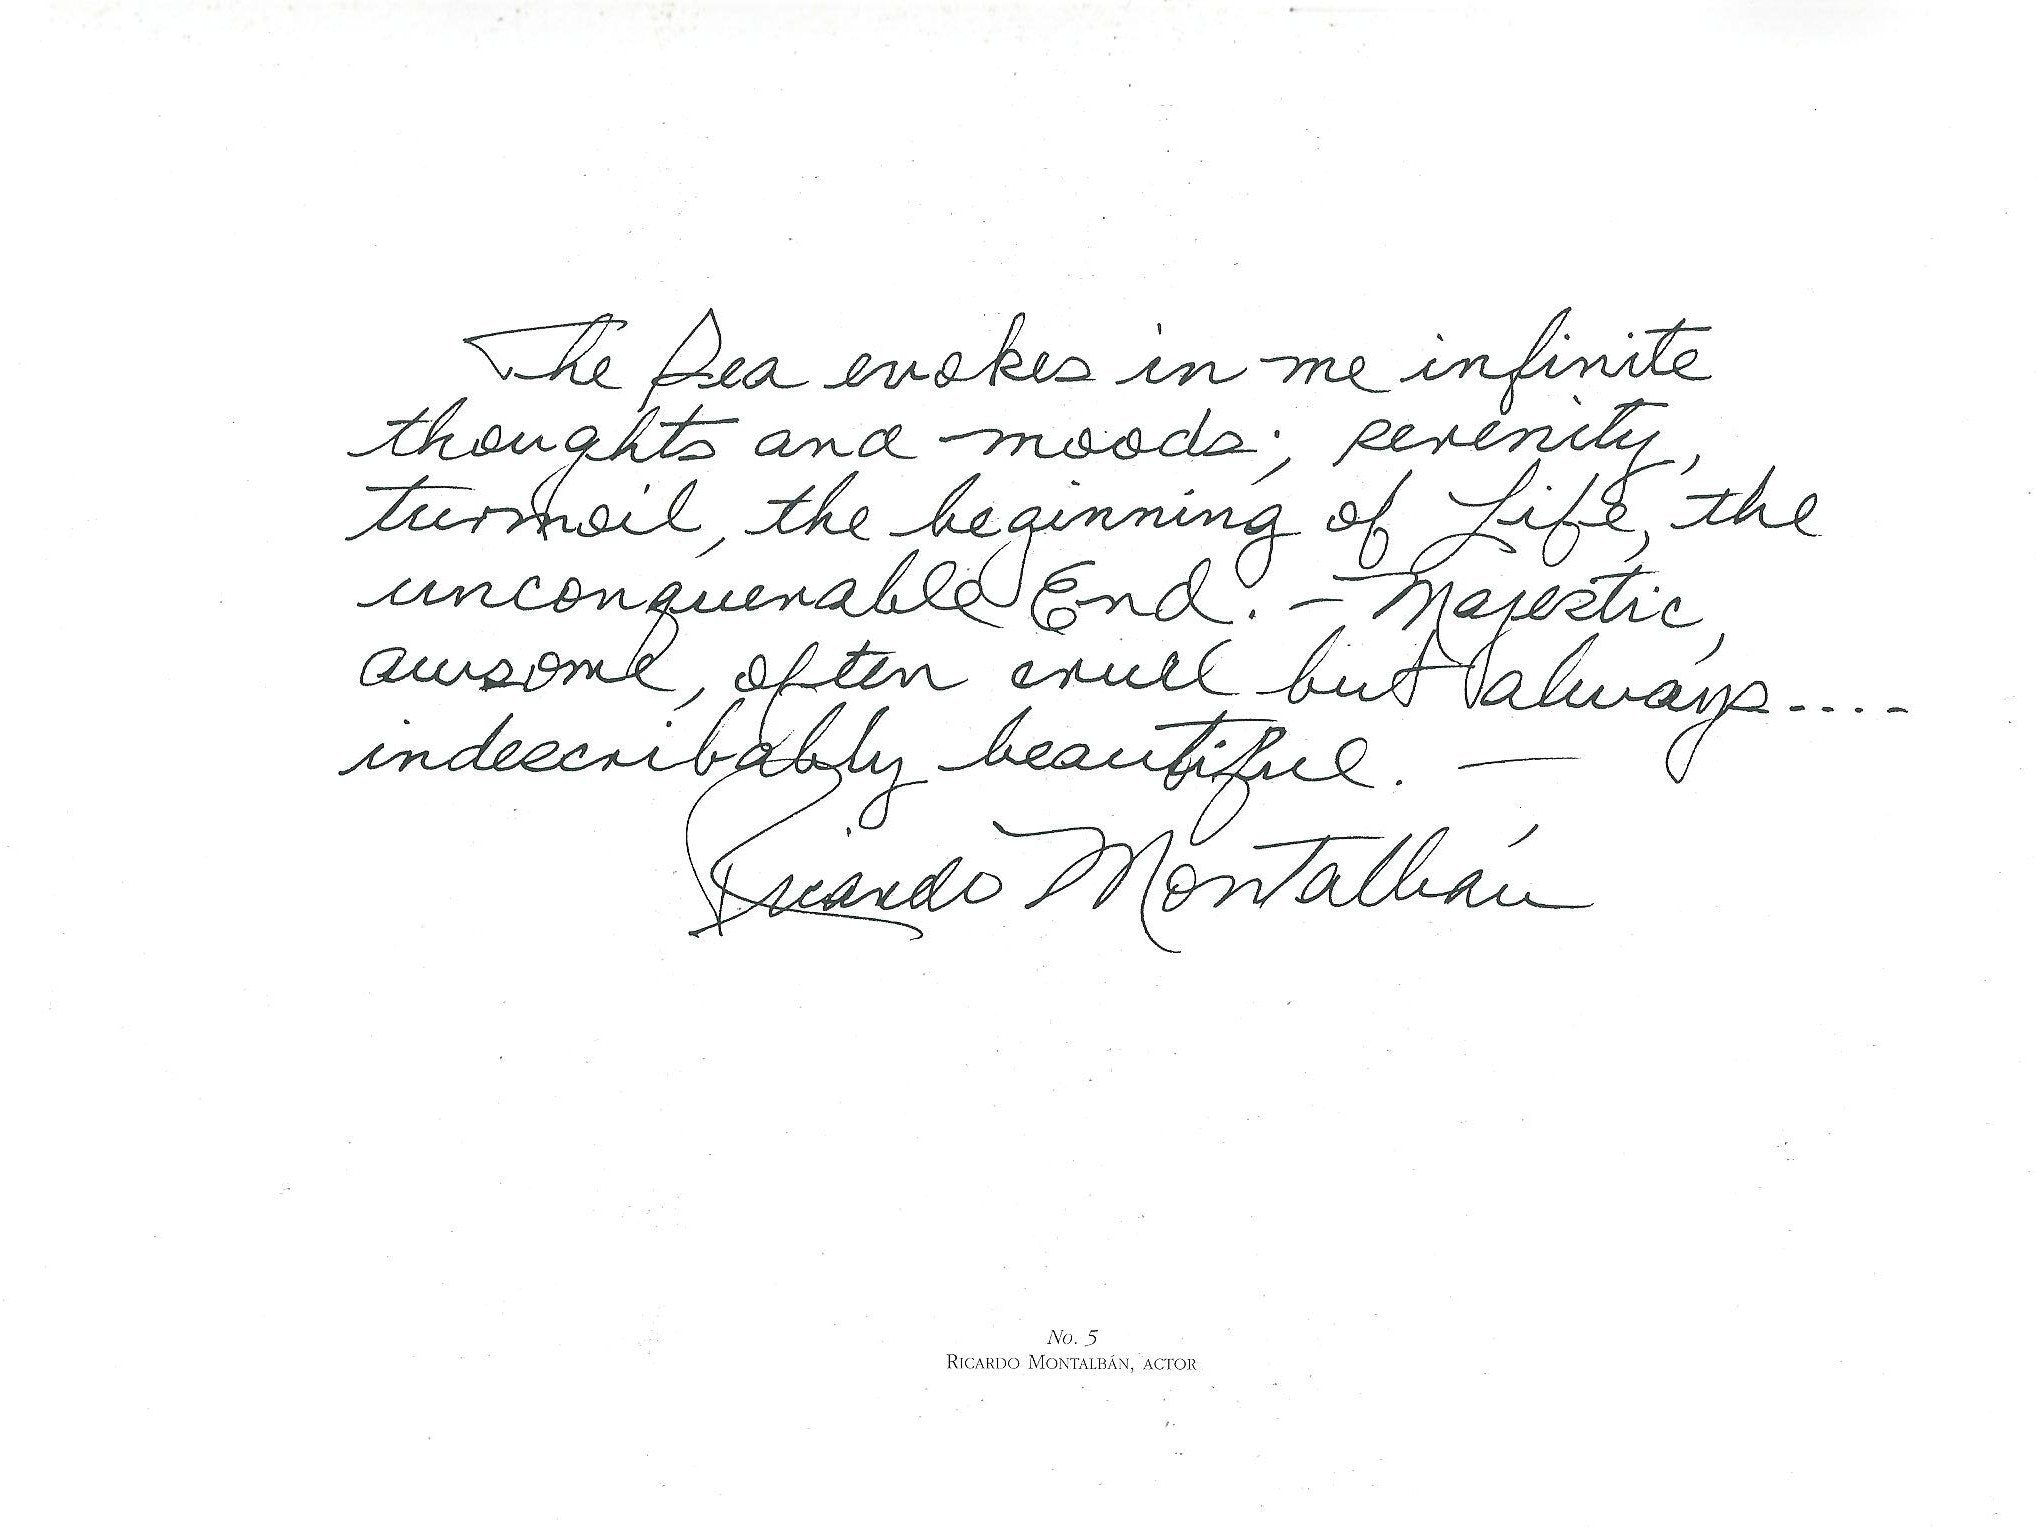 The Sea evokes in me infinite
thoughts and moods; serenity,
turmoil, the beginning of Life, the
unconquerable End. – Majestic,
awsome, often cruel but always....
indescribably beautiful. —
Ricardo Montalbán
No. 5
Ricardo Montalbán, actor